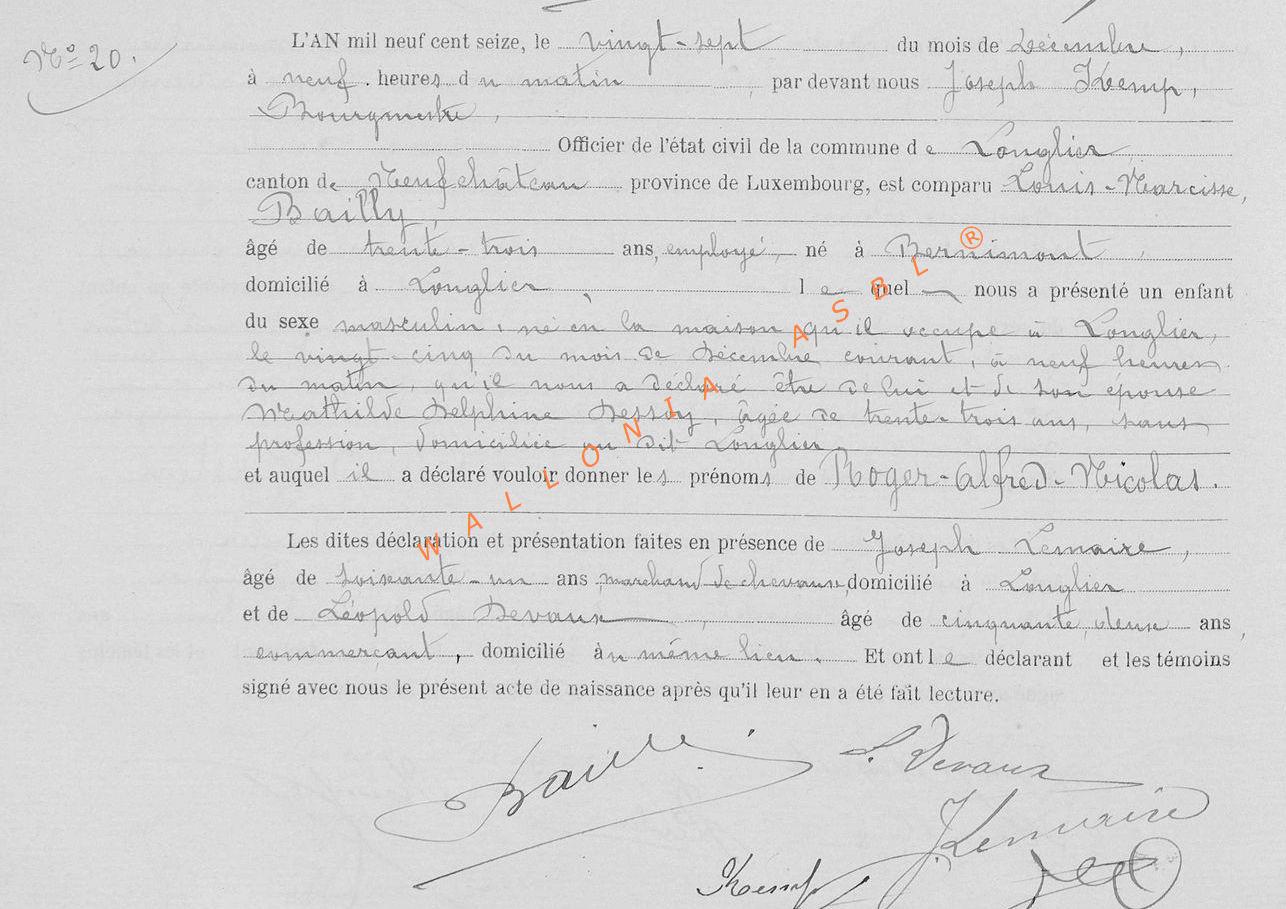 N° 20.
L'AN mil neuf cent seize, le vingt-sept du mois de Décembre,
à neuf heures du matin par devant nous Joseph Kemp,
Bourgmestre,
Officier de l'état civil de la commune de Longlier
canton de Neufchâteau province de Luxembourg, est comparu Louis-Narcisse,
Bailly,
âgé de trente-trois ans, employé, né à Bernimont
domicilié à Longlier, lequel nous a présenté un enfant
du sexe masculin, né en la maison qu'il occupe à Longlier,
le vingt-cinq du mois de Décembre courant, à neuf heures
du matin, qu'il nous a déclaré être de lui et de son épouse
Mathilde Delphine Dessoy, âgée de trente-trois ans, sans
profession, domiciliée au dit Longlier,
et auquel il a déclaré vouloir donner les prénoms de Roger-Alfred-Nicolas.
Les dites déclaration et présentation faites en présence de Joseph Lemaire,
âgé de soixante-un ans, marchand de chevaux, domicilié à Longlier
et de Léopold Devaux, âgé de cinquante deux ans,
commerçant, domicilié au même lieu. Et ont le déclarant et les témoins
signé avec nous le présent acte de naissance après qu'il leur en a été fait lecture.
WALLONIA ASBL ®
Bailly
L. Devaux
J. Lemaire
Kemp